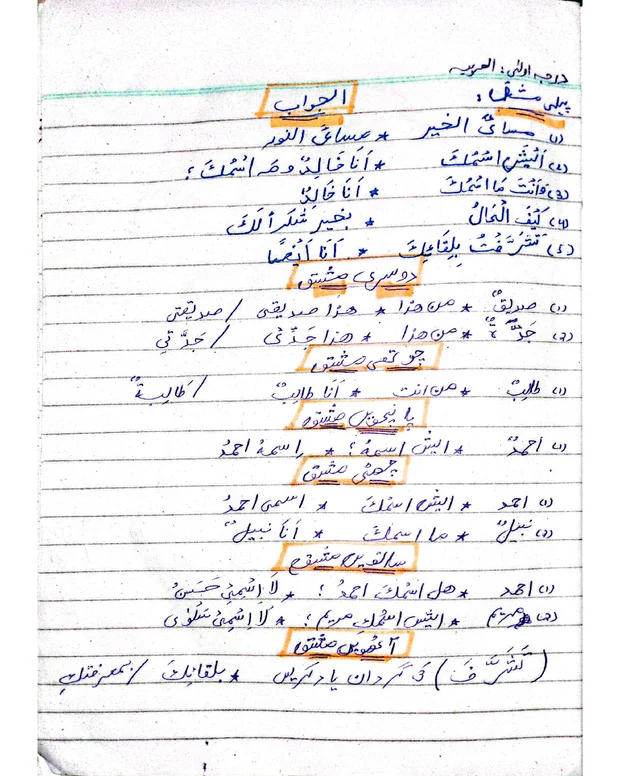 درجہ اولیٰ: العربیہ
پہلی مشق: الجواب
(۱) مساءُ الخیر * مساءَ النور
(۲) اَیْشَ اسْمُكَ * اَنَا خَالِدٌ و مَہ اسْمُكَ؟
(۳) وَاَنْتَ مَا اسْمُكَ * اَنَا خَالِدٌ
(۴) كَیْفَ الْحَالُ * بخیر شُكراً لَكَ
(۵) تَشَرَّفْتُ بِلِقَائِكَ * اَنَا اَیْضًا
دوسری مشق
(۱) صدیقٌ * من ھذا * ھذا صدیقی / صدیقتی
(۲) جَدٌّ ةٌ * من ھذا * ھذا جَدِّی / جَدَّتِی
چوتھی مشق
(۱) طالبٌ * من انت * اَنَا طالِبٌ / طَالِبةٌ
پانچویں مشق
(۱) احمدُ * ایشُ اسمهُ؟ * اِسمهُ احمدُ
چھٹی مشق
(۱) احمد * ایش اسمُكَ * اسمی احمدُ
(۲) نبیلٌ * ما اسمكَ * اَنَا نبیلٌ
ساتویں مشق
(۱) احمد * ھل اسمُكَ احمدُ؟ * لَا اِسْمِیْ حَسَنٌ
(۲) مریم * ایش اسمُكِ مریم؟ * لَا اِسْمِیْ سَلْوٰی
آٹھویں مشق
(تَشَرَّفَ) کی گردان یاد کریں * بلقائِكَ / بمعرفتكَ